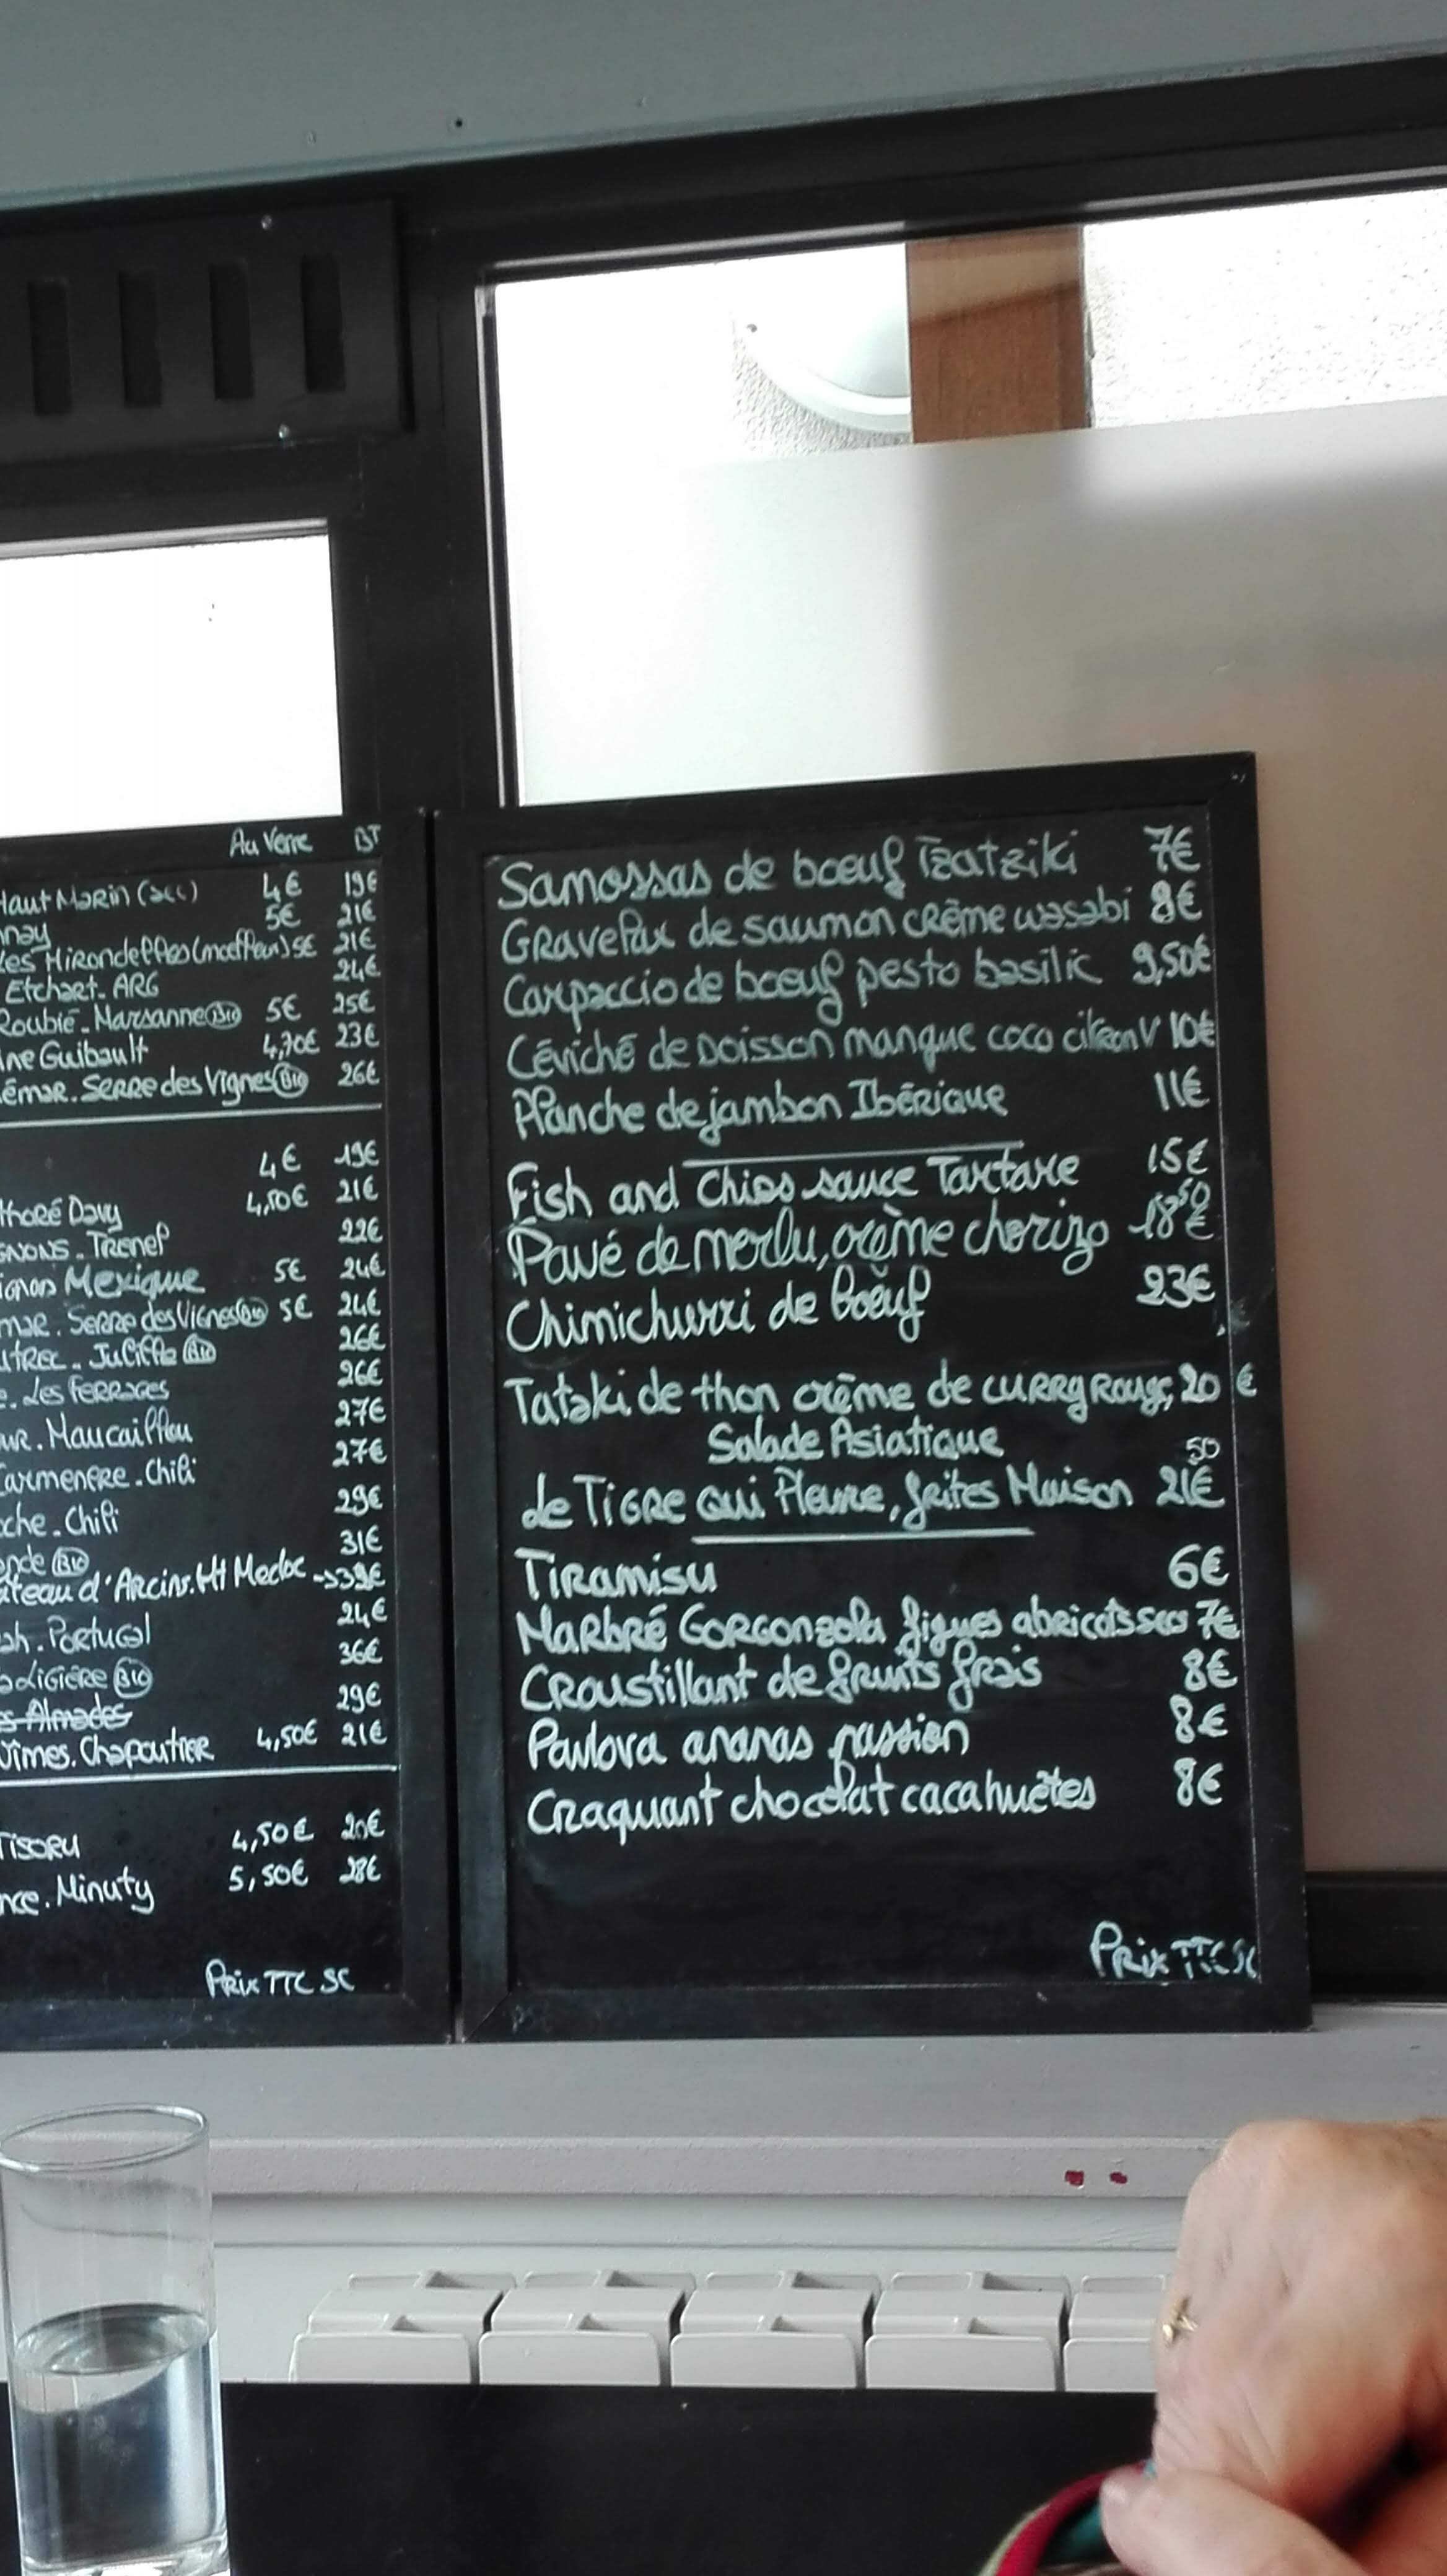 Au Verre BT
Haut Marin (sec) 4€ 19€
nnay 5€ 21€
Les Hirondelles (moelleux) 5€ 21€
Etchart. ARG 24€
Roubié. Marsanne BIO 5€ 25€
ine Guibault 4,70€ 23€
émar. Serre des Vignes BIO 26€
4€ 19€
thoré Davy 4,50€ 21€
GNONS. Trenel 22€
ignon Mexique 5€ 24€
mar. Serre des Vignes BIO 5€ 24€
utrec. Juliette BIO 26€
e. Les Ferrages 26€
ur. Maucaillou 27€
Carmenere. Chili 27€
che. Chili 29€
onde BIO 31€
âteau d'Arcins. Ht Medoc → 39€
ah. Portugal 24€
BIO 36€
s Almades 29€
Nîmes. Chapoutier 4,50€ 21€
4,50€ 20€
nce. Minuty 5,50€ 28€
Prix TTC SC
Samossas de boeuf Tzatziki 7€
Gravelax de saumon crème wasabi 8€
Carpaccio de boeuf pesto basilic 9,50€
Céviché de poisson mangue coco citron V 10€
Planche de jambon Ibérique 11€
Fish and Chips sauce Tartare 15€
Pavé de merlu, crème chorizo 18€50
Chimichurri de boeuf 23€
Tataki de thon crème de curry rouge, 20 €
Salade Asiatique
Le Tigre qui Pleure, frites Maison 21€50
Tiramisu 6€
Marbré Gorgonzola figues abricots secs 7€
Croustillant de fruits frais 8€
Pavlova ananas passion 8€
Craquant chocolat cacahuètes 8€
Prix TTC SC